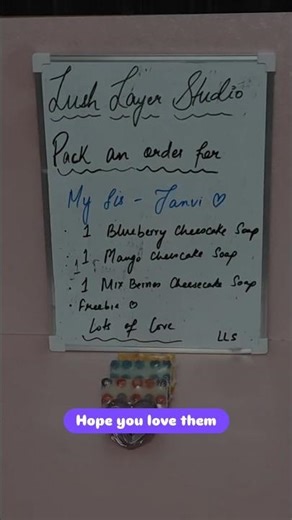 Lush Layer Studio
Pack an order for
My Sis - Janvi ♡
· 1 Blueberry Cheesecake Soap
· 1 Mango Cheescake Soap
· 1 Mix Berries Cheesecake Soap
· Freebie ♡
Lots of Love
LLS
Hope you love them